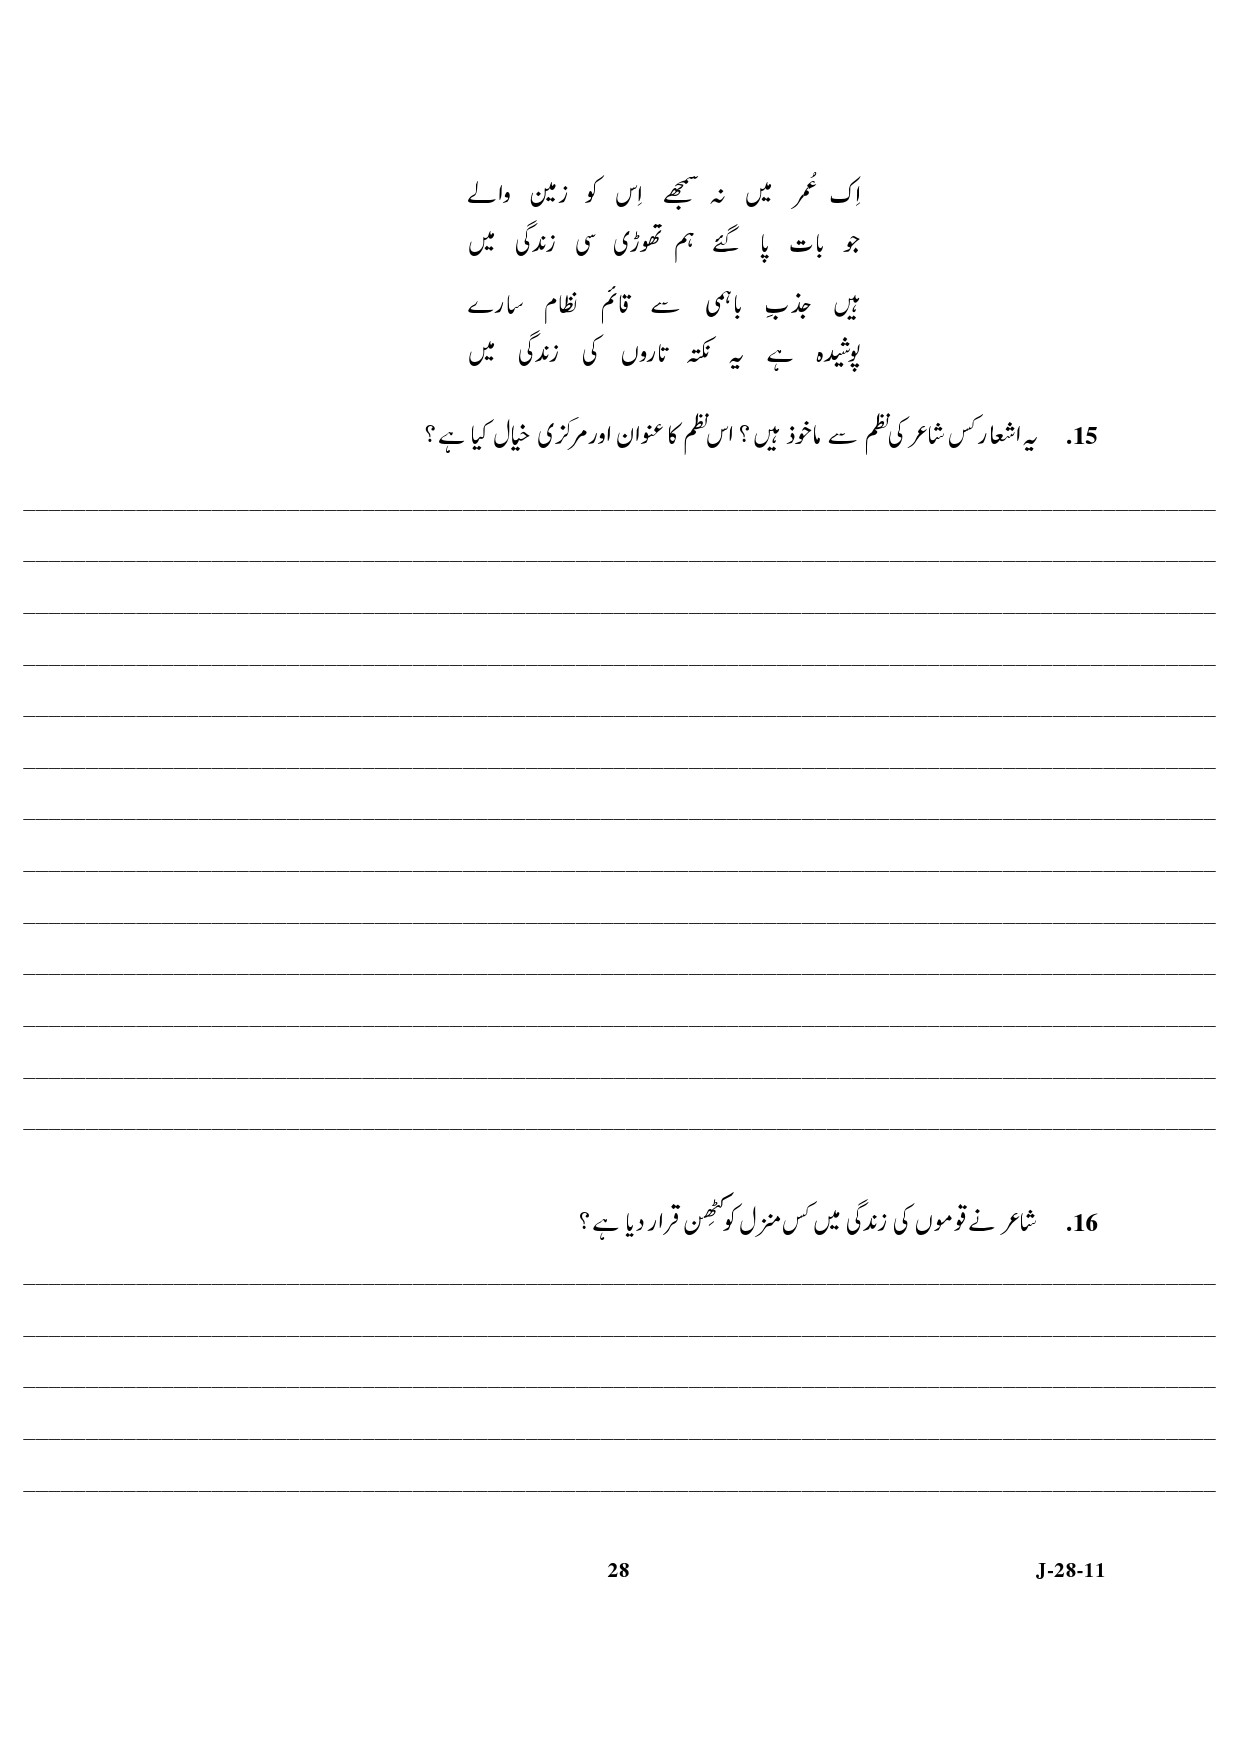 اِک عُمر میں نہ سمجھے اِس کو زمین والے
جو بات پا گئے ہم تھوڑی سی زندگی میں
ہیں جذبِ باہمی سے قائم نظام سارے
پوشیدہ ہے یہ نکتہ تاروں کی زندگی میں
15. یہ اشعار کس شاعر کی نظم سے ماخوذ ہیں؟ اس نظم کا عنوان اور مرکزی خیال کیا ہے؟
16. شاعر نے قوموں کی زندگی میں کس منزل کو کٹھِن قرار دیا ہے؟
28 J-28-11